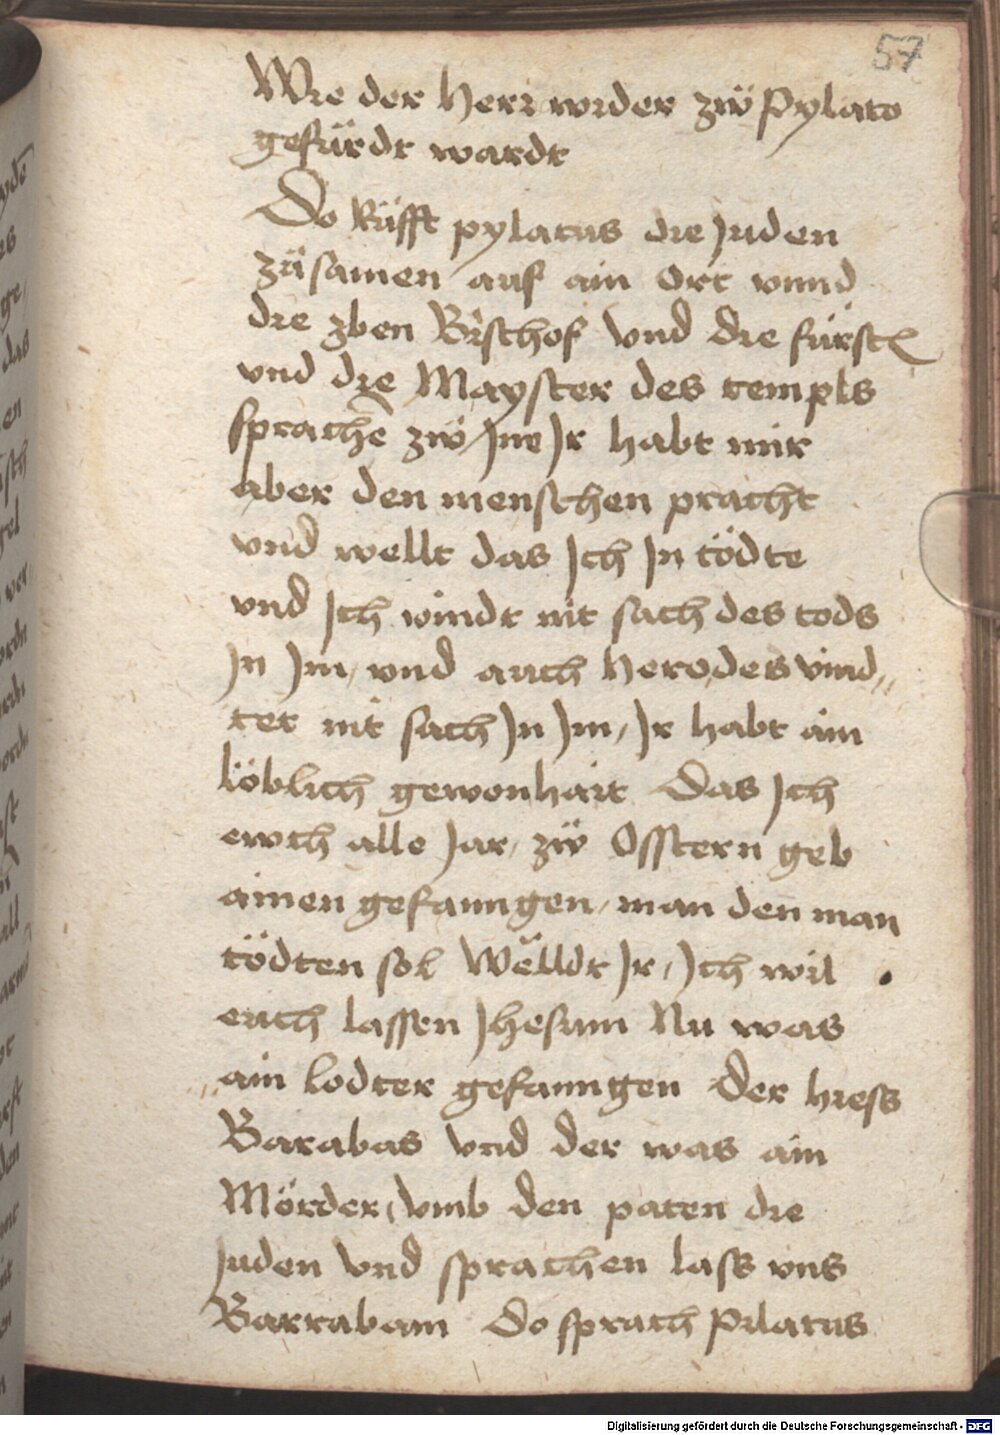 57
Wie der Herr wider zw̋ Pylato
gefürdt wardt
Do Rüfft pylatus die Juden
züsamen auf ain Ort vnnd
die zben Bischof vnd die fürst
vnd die Mayster des templs
sprachē zw̋ Jne Jr habt mir
aber den menschen pracht
vnd wellt das Jch Jn tödte
vnd Jch vindt nit sach des tods
Jn Jm, vnd auch Herodes vind,,
tet nit sach Jn Jm, Jr habt ain
löblich gewonhait Das Jch
ewch alle Jar, zw̋ Osstern geb
ainen gefanngen, man den man
tödten sol Wëlldt Jr, Jch wil
euch lassen Jhesum Nu was
ain lodter gefanngen Der hiess
Barabas vnd der was ain
Mörder, vmb den paten die
Juden vnd sprachen lass vns
Barrabam Do sprach Pilatus
Digitalisierung gefördert durch die Deutsche Forschungsgemeinschaft - DFG